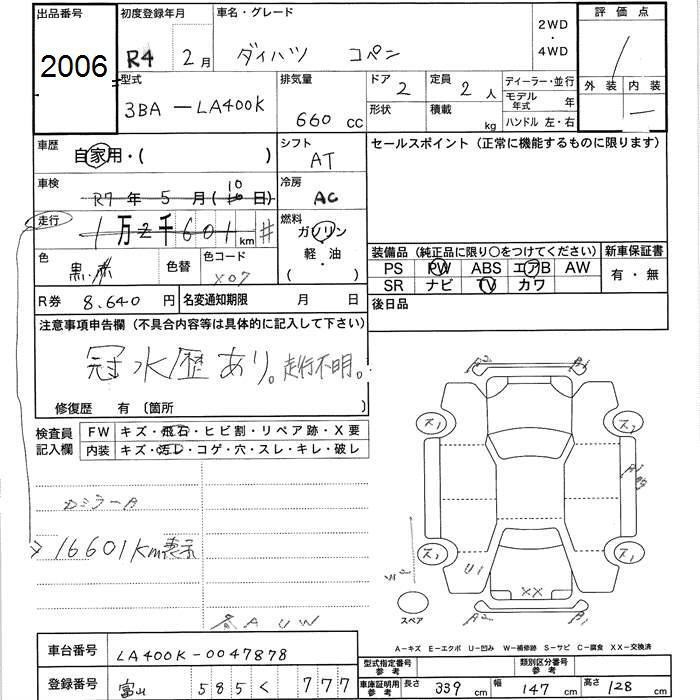 出品番号 初度登録年月 車名・グレード 2WD ・ 4WD 評価点
2006 R4 2月 ダイハツ コペン /
型式 排気量 ドア 2 定員 2人 ディーラー・並行 外装 内装
3BA-LA400K 660 cc 形状 積載 kg モデル年式 年 —
ハンドル 左・右
車歴 自家用・( ) シフト AT セールスポイント (正常に機能するものに限ります)
車検 R7年 5月(10日) 冷房 AC
走行 1万 千601 km # 燃料 ガソリン 軽・油 ( )
色 黒 色替 色コード X07
装備品 (純正品に限り○をつけてください) 新車保証書
PS PW ABS エアB AW 有・無
SR ナビ TV カワ
R券 8.640円 名変通知期限 月 日 後日品
注意事項申告欄 (不具合内容等は具体的に記入して下さい)
冠水歴あり。走行不明。
修復歴 有 〔箇所 〕
検査員記入欄 FW キズ・飛石・ヒビ割・リペア跡・X要
内装 キズ・汚レ・コゲ・穴・スレ・キレ・破レ
カミラーA
→16601km表示
A U W
A2 A1
ス1 ス2
A1
ス2 ス1
U1 XX
スペア A2 A1
A-キズ E-エクボ U-凹み W-補修跡 S-サビ C-腐食 XX-交換済
車台番号 LA400K-0047878 型式指定番号 類別区分番号
登録番号 富山 585 く 777 車庫証明用参考 長さ 339 cm 幅 147 cm 高さ 128 cm
参考 参考